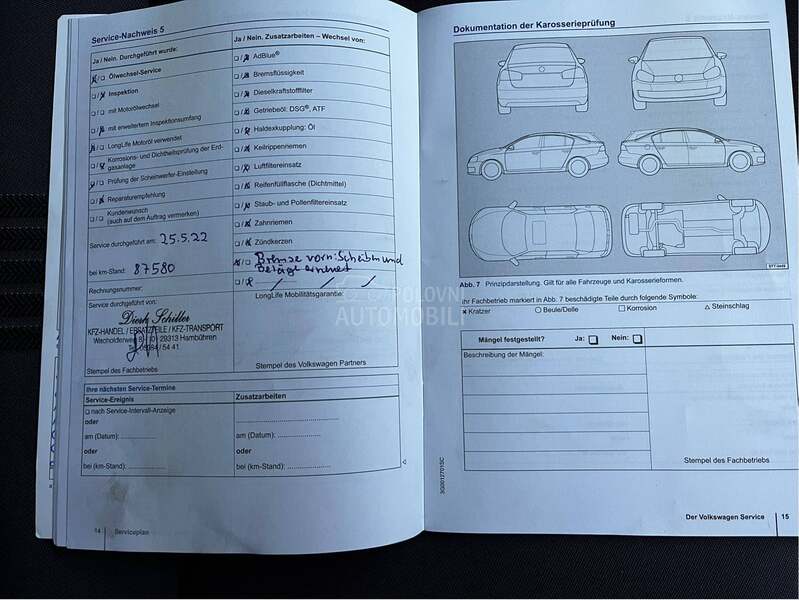 Service-Nachweis 5
Ja / Nein. Durchgeführt wurde:
Ölwechsel-Service
Inspektion
mit Motorölwechsel
mit erweitertem Inspektionsumfang
LongLife Motoröl verwendet
Korrosions- und Dichtheitsprüfung der Erd-
gasanlage
Prüfung der Scheinwerfer-Einstellung
Reparaturempfehlung
Kundenwunsch
(auch auf dem Auftrag vermerken)
Service durchgeführt am: 25.5.22
bei km-Stand: 87580
Rechnungsnummer:
Service durchgeführt von:
Dierk Schiller
KFZ-HANDEL / ERSATZTEILE / KFZ-TRANSPORT
29313 Hambühren
Stempel des Fachbetriebs
Ja / Nein. Zusatzarbeiten – Wechsel von:
AdBlue®
Bremsflüssigkeit
Dieselkraftstofffilter
Getriebeöl: DSG®, ATF
Haldexkupplung: Öl
Keilrippenriemen
Luftfiltereinsatz
Reifenfüllflasche (Dichtmittel)
Staub- und Pollenfiltereinsatz
Zahnriemen
Zündkerzen
Bremse vorn: Scheiben und
Beläge erneuert
LongLife Mobilitätsgarantie:
Stempel des Volkswagen Partners
Ihre nächsten Service-Termine
Service-Ereignis
nach Service-Intervall-Anzeige
oder
am (Datum):
oder
bei (km-Stand):
Zusatzarbeiten
am (Datum):
oder
bei (km-Stand):
14 Serviceplan
POLOVNI
AUTOMOBILI
Dokumentation der Karosserieprüfung
Abb. 7 Prinzipdarstellung. Gilt für alle Fahrzeuge und Karosserieformen.
Ihr Fachbetrieb markiert in Abb. 7 beschädigte Teile durch folgende Symbole:
Kratzer Beule/Delle Korrosion Steinschlag
Mängel festgestellt? Ja: Nein:
Beschreibung der Mängel:
Stempel des Fachbetriebs
3G0012701SC
Der Volkswagen Service 15